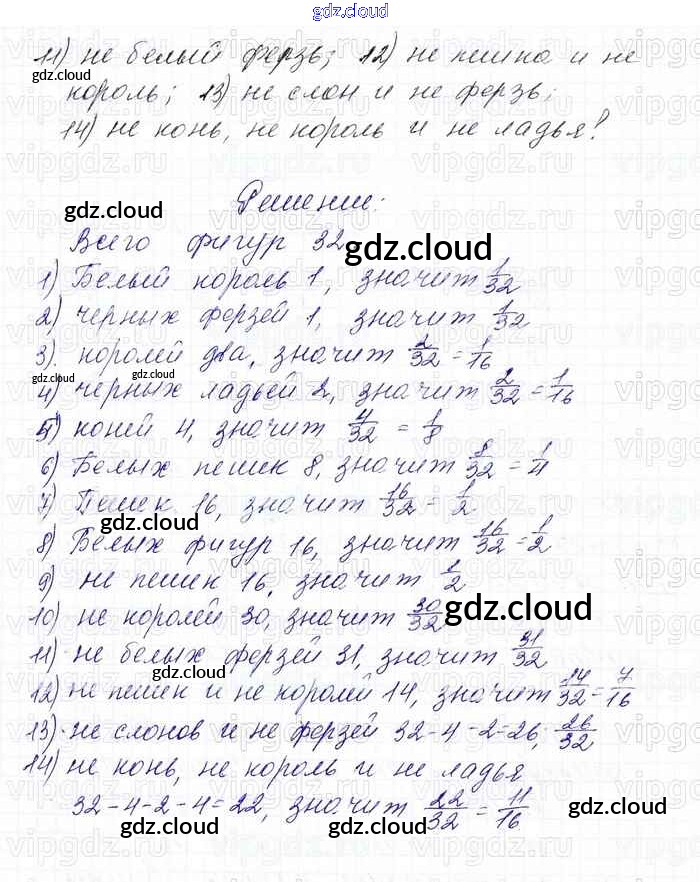 gdz.cloud
11) не белый ферзь; 12) не пешка и не
gdz.cloud
король; 13) не слон и не ферзь;
14) не конь, не король и не ладья?
Решение:
gdz.cloud
Всего фигур 32
gdz.cloud
1) Белый король 1, значит 1/32
2) черных ферзей 1, значит 1/32
3) королей два, значит 2/32 = 1/16
gdz.cloud
4) черных ладьей 2, значит 2/32 = 1/16
5) коней 4, значит 4/32 = 1/8
6) Белых пешек 8, значит 8/32 = 1/4
7) Пешек 16, значит 16/32 = 1/2
gdz.cloud
8) Белых фигур 16, значит 16/32 = 1/2
9) не пешек 16, значит 1/2
10) не королей 30, значит 30/32
gdz.cloud
11) не белых ферзей 31, значит 31/32
gdz.cloud
12) не пешек и не королей 14, значит 14/32 = 7/16
13) не слонов и не ферзей 32-4-2=26, 26/32
14) не конь, не король и не ладья
32-4-2-4=22, значит 22/32 = 11/16
gdz.cloud
gdz.cloud gdz.cloud